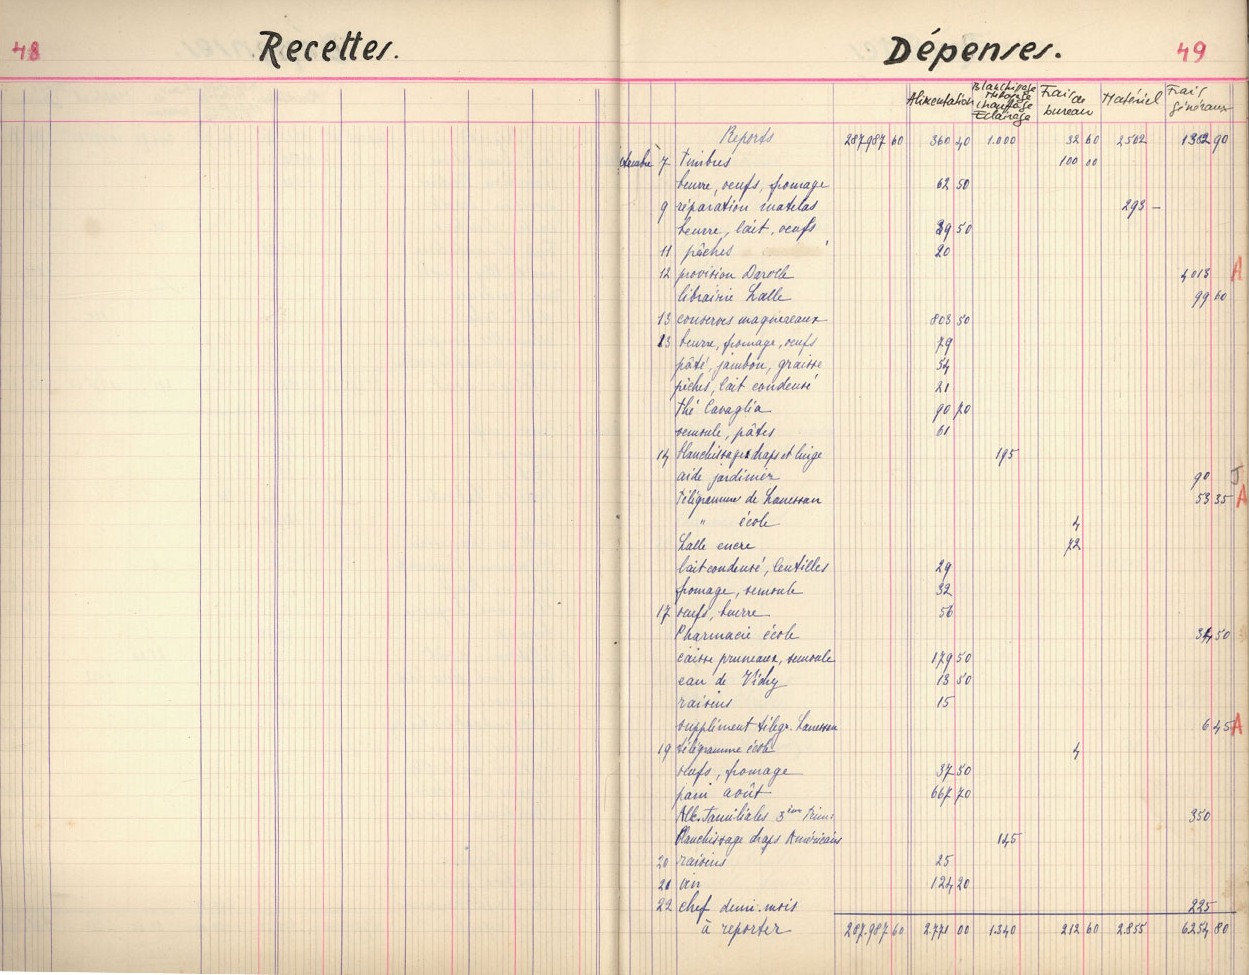 48
Recettes.
Dépenses.
49
Alimentation
Blanchissage
Chauffage
Eclairage
Frais de
bureau
Matériel
Frais
Généraux
Reports 287.987 60 360 40 1.000 32 60 2502 90
7 timbres 100 00
beurre, oeufs, fromage 62 50
9 réparation matelas 293 —
beurre, lait, oeufs 50
11 pêches 20
12 provision 4013 A
librairie Lalle 99 60
13 conserves maquereaux 803 50
13 beurre, fromage, oeufs 79
pâté, jambon, graisse 54
pêches, lait condensé 21
thé Cavaglia 90 70
semoule, pâtes 61
14 blanchissage draps et linge 195
aide jardinier 90 J
télégramme de Lanessan 53 35 A
" école 4
Lalle encre 72
lait condensé, lentilles 29
fromage, semoule 32
17 oeufs, beurre 56
Pharmacie école 50
caisse pruneaux, semoule 179 50
eau de Vichy 13 50
raisins 15
supplément télégr. Lanessan 6 45 A
19 télégramme école 4
oeufs, fromage 37 50
pain août 667 70
All. Familiales 3ième trim: 350
Blanchissage draps Américains 145
20 raisins 25
21 vin 124 20
22 chef demi-mois 225
à reporter 287.987 60 2.771 00 1340 212 60 2.855 6254 80